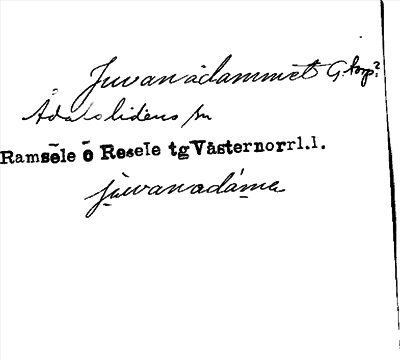 Juvanådammet G. torp?
Ådalslidens sn
Ramsele o Resele tg Västernorrl.l.
jùwanadáme